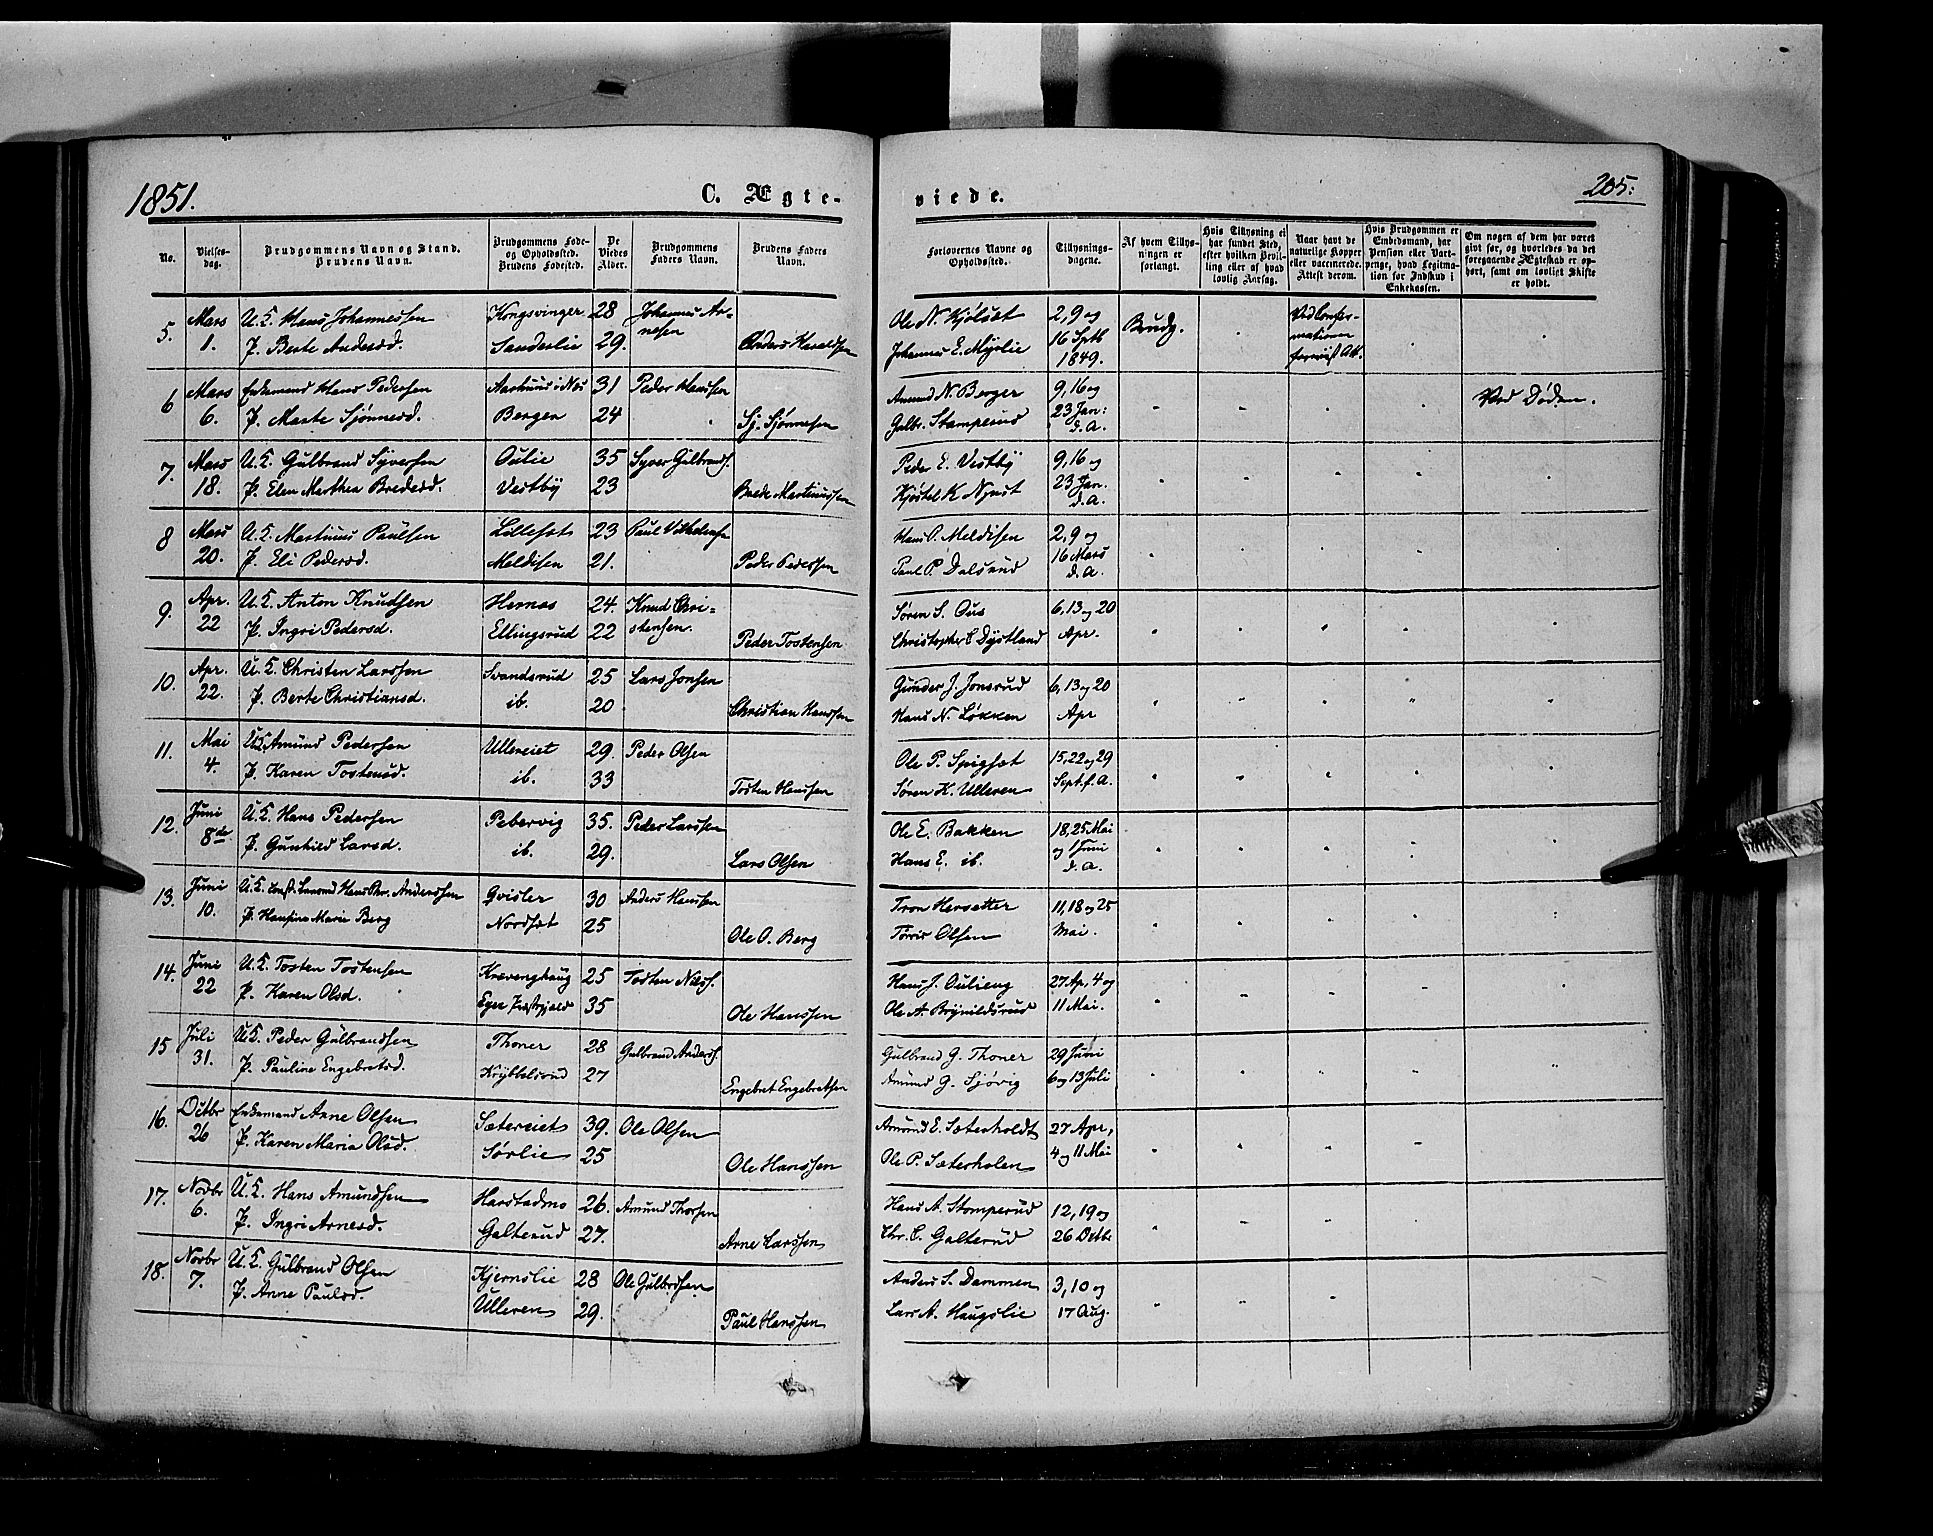 1851.
C. Ægte-
viede.
205.
No.
Vielses-
dag.
Brudgommens Navn og Stand.
Brudens Navn.
Brudgommens Føde-
og Opholdssted.
Brudens Fødested.
De
Viedes
Alder.
Brudgommens
Faders Navn.
Brudens Faders
Navn.
Forlovernes Navne og
Opholdssted.
Tillysnings-
dagene.
Af hvem Tillys-
ningen er
forlangt.
Hvis Tillysning ei
har fundet Sted,
efter hvilken Bevil-
ling eller af hvad
lovlig Aarsag.
Naar havt de
naturlige Kopper
eller vaccinerede.
Attest derom.
Hvis Brudgommen er
Embedsmand, har
Pension eller Vart-
penge, hvad Legitima-
tion for Indskud i
Enkekassen.
Om nogen af dem har været
gift før, og hvorledes da det
foregaaende Ægteskab er op-
hørt, samt om lovligt Skifte
er holdt.
5. Mars 1. U.K. Hans Johannessen Kongsvinger 28 Johannes Ar-
nesen
P. Berte Andersd. Sanderlie 29. Anders Haraldsen
Ole N. Kjølset 2, 9 og Brudg. Ved Confir-
Johannes E. Myrlie 16 Septb mationen
1849. foreviist Att.
6 Mars 6. Enkemand Hans Pedersen Aarhuus i Næs 31 Peder Hanssen
P. Marte Sjønnesd. Bergen 24 Sj. Sjønnesen
Amund N. Berger 9, 16 og Ved Døden.
Gulbr. Stamperud 23 Jan:
d. A.
7. Mars 18. U.K. Gulbrand Syversen Oulie 35 Syver Gulbrands.
P. Elen Marthea Bredesd. Vestby 23 Brede Martinussen
Peder E. Vestby 9, 16 og
Kjøstel K 23 Jan.
d. A.
8 Mars 20. U.K. Martinus Paulsen Lillesæt 23 Paul Vilhelmsen
P. Eli Pedersd. Meldisen 21. Peder Pedersen
Hans O. Meldisen 2, 9 og
Paul P. Dalsrud 16 Mars
d. A.
9. Apr. 22 U.K. Anton Knudsen Hernæs 24. Knud Chri-
stensen.
P. Ingri Pedersd. Ellingsrud 22 Peder Tostensen
Søren S. Ous 6, 13 og 20
Christopher C Dystland Apr.
10. Apr. 22. U.K. Christen Larssen Svandsrud 25 Lars Jonsen
P. Berte Christiansd. ib. 20 Christian Hanssen
Gunder J. Jonsrud 6, 13 og 20
Hans N. Løkken Apr
11. Mai 4. U.K. Amund Pedersen Ullereiet 29. Peder Olsen
P. Karen Tostensd. ib. 33 Tosten Hanssen
Ole P. Spigset 15, 22 og 29
Søren K. Ulleren Sept. f. A.
12. Juni 8de U.K. Hans Pedersen Pebervig 35. Peder Larssen
P. Gunhild Larsd. ib. 29. Lars Olsen
Ole E. Bakken 18, 25 Mai
Hans E. ib. og 1 Juni
d. A.
13. Juni 10. U.K. Hans Chr. Anderssen Gvisler 30 Anders Hanssen
P. Hansine Marie Berg Nordset 25 Ole O. Berg
Tron Hersetter 11, 18 og 25
Olsen Mai.
14. Juni 22 U.K. Tosten Tostensen Kravenghaug 25 Tosten Nilss.
P. Karen Olsd. Eger Præstegjeld 35 Ole Hanssen
Hans J. Oulieng 27 Ap, 4 og
Ole A. Brynildsrud 11 Mai.
15 Juli 31. U.K. Peder Gulbrandsen Thoner 28 Gulbrand Anders.
P. Pauline Engebretsd. Krybbelsrud 27 Engebret Engebretsen
Gulbrand G. Thoner 29 Juni
Amund G. Sjøvig 6 og 13 Juli
16. Octbr 26 Enkemand Arne Olsen Sætereiet 39. Ole Olsen
P. Karen Maria Olsd. Sørlie 25 Ole Hanssen
Amund E. Sæterholdt 27 Apr,
Ole P. Sæterholen 4 og 11 Mai
17. Novbr 6. U.K. Hans Amundsen Harstadmo 26. Amund Thorsen
P. Ingri Arnesd. Galterud 27. Arne Larssen
Hans A. Stomperud 12, 19 og
Chr. C. Galterud 26 Octbr
18. Novbr 7. U.K. Gulbrand Olsen Kjernslie 28 Ole Gulbrdsen
P. Anne Paulsd. Ulleren 29. Paul Hanssen
Anders S. Dammen 3, 10 og
Lars A. Haugslie 17 Aug.